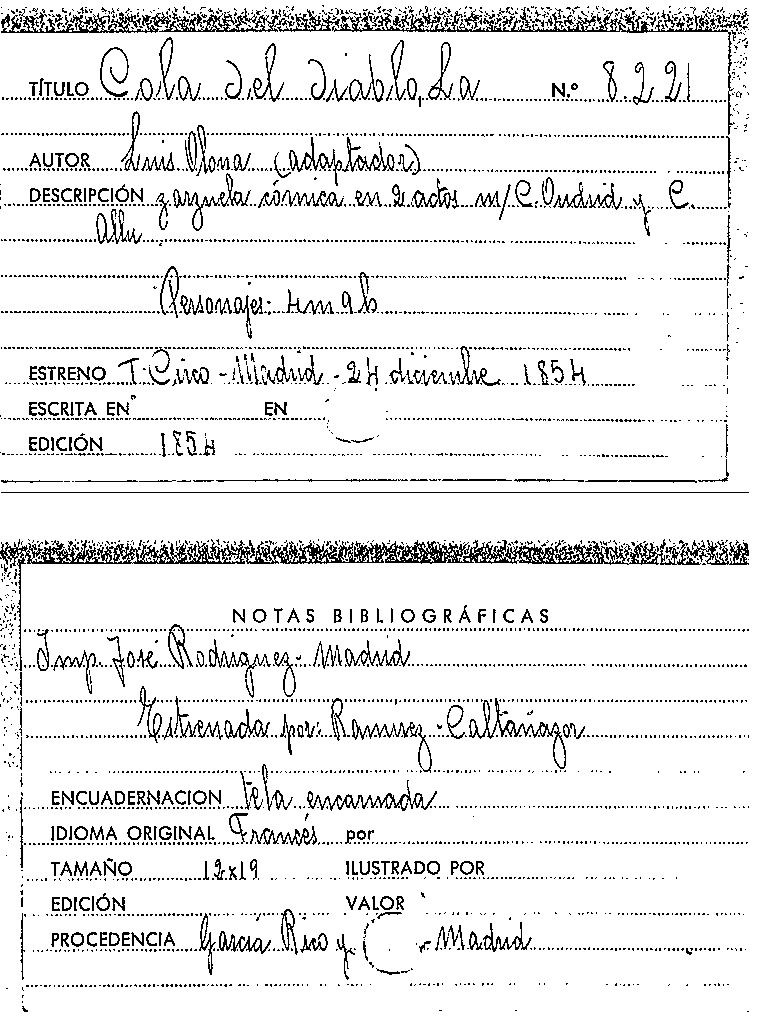 TÍTULO Cola del diablo, La N.º 8.2.21
AUTOR Luis Olona (adaptador)
DESCRIPCIÓN zarzuela cómica en 2 actos m/ C. Oudrid y C.
Allu
Personajes: 4m 9h
ESTRENO T. Circo - Madrid - 24 diciembre 1854
ESCRITA EN EN
EDICIÓN 1854
NOTAS BIBLIOGRÁFICAS
Imp. José Rodriguez - Madrid
Estrenada por: Ramirez - Caltañazor
ENCUADERNACION tela encarnada
IDIOMA ORIGINAL Francés por
TAMAÑO 12x19 ILUSTRADO POR
EDICIÓN VALOR
PROCEDENCIA García Rico y - Madrid